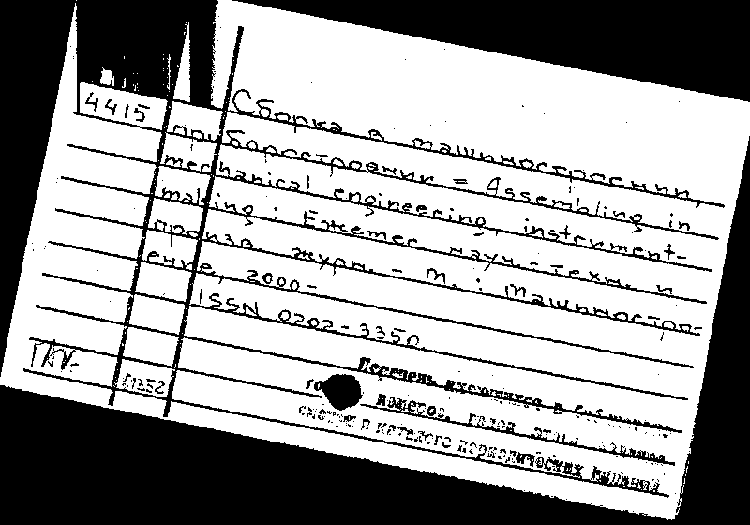 4415
Сборка в машиностроении,
приборостроении = Assembling in
mechanical engineering, instrument-
making : Ежемес. науч.-техн. и
произв. журн. - М. : Машиностро-
ение, 2000-
ISSN 0202-3350.
Перечень имеющихся в библиотеке
номеров, годов этого издания
смотри в каталоге периодических изданий